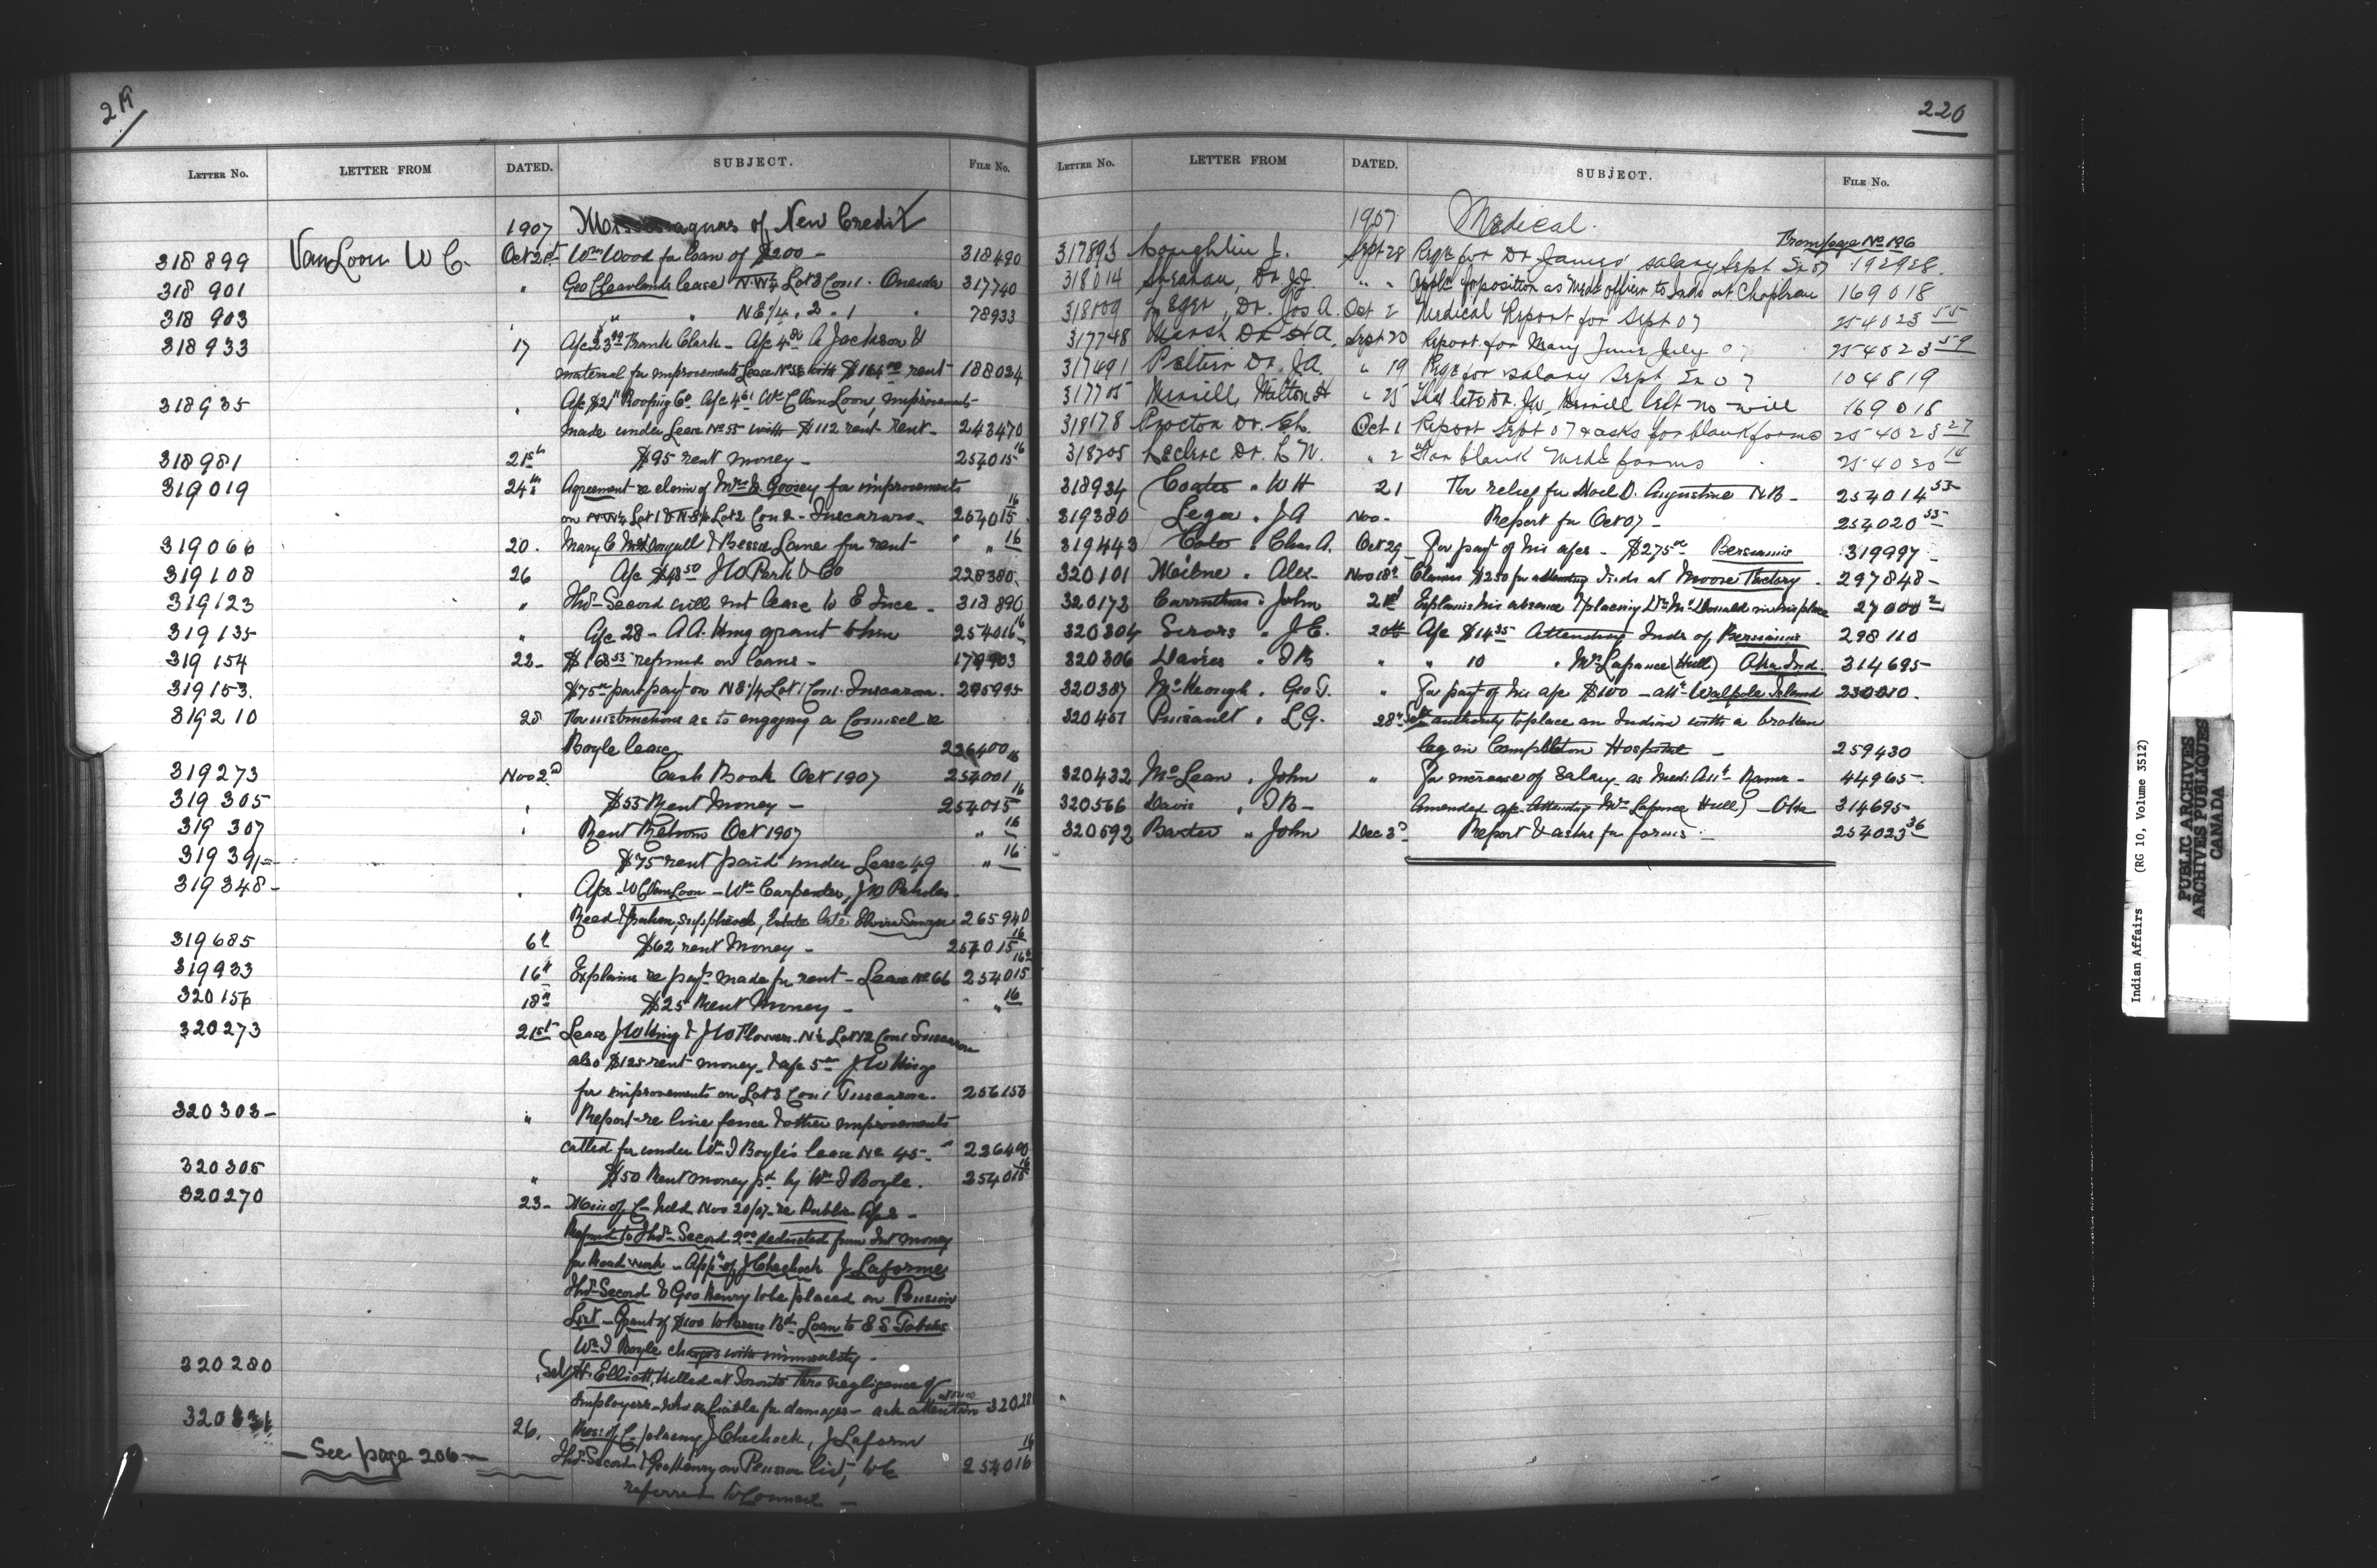 219
LETTER NO. LETTER FROM DATED. SUBJECT. FILE NO.
1907 of New Credit
318899 VanLoon W C. Oct 21st Wm Wood for loan of $200 - 318490
318 901 " Geo Cleavlands lease N.W¼ Lot 3 Con 1. Oneida 317740
318 903 " " N E¼ . 2 . 1 " 78933
318933 17 A/c Frank Clark - A/c A Jackson &
material for improvements Lease No with rent 188034
318935 " A/c $21 Roofing Co. A/c Wm C VanLoon, improvements
made under Lease No 55 with $112 rent 243470
318981 21st $95 rent money - 254015 16
319019 24th Agreement re claim of Mrs Goosey for improvements
on N W¼ Lot 1 & N E¼ Lot 2 Con 2 - Tuscarora 254015 16
319066 20. Mary C & Bessie Lane for rent " " 16
319108 26 A/c $48 50 J W Park & Co 228380
319123 " Thos Secord will not lease to E Ince - 318890
319135 " A/c 28 - A A. King grant to him 254016 16
319154 22 - $168 53 refund on loans - 179903
319153. $75 part payt on N E¼ Lot 1 Con 1. Tuscarora. 295995
319210 28 For instructions as to engaging a Counsel re
Boyle lease 226400
319273 Nov 2nd Cash Book Oct 1907 254001 16
319305 " $55 Rent Money - 254015 16
319 307 " Rent Return Oct 1907 " 16
319391 $75 rent paid under Lease 49 " 16
319348 - " A/cs - W C VanLoon - Wm Carpenter, J W
Reed & Graham, supplies, Estate late Sawyer 265940
319685 6th $62 rent Money - 254015 16
319933 16th Explains re payt made for rent - Lease No 66 254015
320156 18th $25 Rent Money - " 16
320273 21st Lease J W King & J W Flowers N½ Lot 12 Con 1 Tuscarora
also $125 rent money & a/c J. W King
for improvements on Lot 3 Con 1 Tuscarora. 256150
320303 - " Report re line fence & other improvements
called for under Wm J Boyle's lease No 45 - 226400
320305 " $50 Rent money pd by Wm J Boyle. 254015 16
320270 23 - Min of C. held Nov 20/07 re Public
Refund to Thos Secord deducted from Int money
for Road work - App of J Chechock J Laforme
Thos Secord & Geo Henry to be placed on Pension
List - Grant of $100 to Loan to E S
Wm J Boyle charges with immorality.
320280 H. Elliott, killed at Toronto thro negligence of
employers - who is liable for damages - ask attention 320280
26. Res: of C. placing J Chechock, J Laform
Thos Secord & Geo Henry on Pension list, to be 254016 16
referred to Council -
- See page 206 -
220
LETTER NO. LETTER FROM DATED. SUBJECT. FILE NO.
1907 Medical.
From page No 196
317893 Coughlin J. Sept 28 for Dr James' salary Sept 192928.
318014 Dr J.J. " " Appln for position as Medl officer to Inds at Chapleau 169018
318109 Dr. Jos A. Oct 2 Medical Report for Sept 07 254023 55
317748 Marsh Dr A. Sept 30 Report for May June July 07 254023 59
317491 Peltier Dr. J A. " 19 for salary Sept 104819
317705 Merrill, Milton H " 25 That late Dr. J W. Merrill left no will 169018
318178 Procton Dr. Oct 1 Report Sept 07 & asks for blank forms 254023 27
318205 Leclerc Dr. L N. " 2 For blank medl forms 254020 14
318934 Coates " W H 21 For relief for Noel D. Augustine N B - 254014 53
319380 Leger " J A Nov - Report for Oct 07 - 254020 55
319443 " Chas A. Oct 29 - For payt of his a/cs - $275 Bersimis 319997
320101 Milne " Alex - Nov 18th Claims $250 for attending Inds at Moose Factory. 297848 -
320172 Carruthers " John 21st Explains his absence & placing Dr McDonald in his place 27000 2
320304 Sirois " J E. 20th A/c $14 35 Attending Inds of Bersimis 298110
320306 Davies " J B " " 10 " Mrs Lafrance (Hull) Oka Ind. 314695
320387 McKeough " Geo T. " For payt of his a/c $100 - attg Walpole Island 230010.
320457 Pinault " L G. 28th authority to place an Indian with a broken
leg in Campbellton Hospital - 259430
320432 McLean " John " For increase of Salary as Med: Att - 44965 -
320566 Davis " J B - Amended a/c attending Mrs Lafrance Hull) - Oka 314695
320592 Baxter " John Dec 3rd Report & asks for forms - 254023 36
Indian Affairs (RG 10, Volume 3512)
PUBLIC ARCHIVES
ARCHIVES PUBLIQUES
CANADA